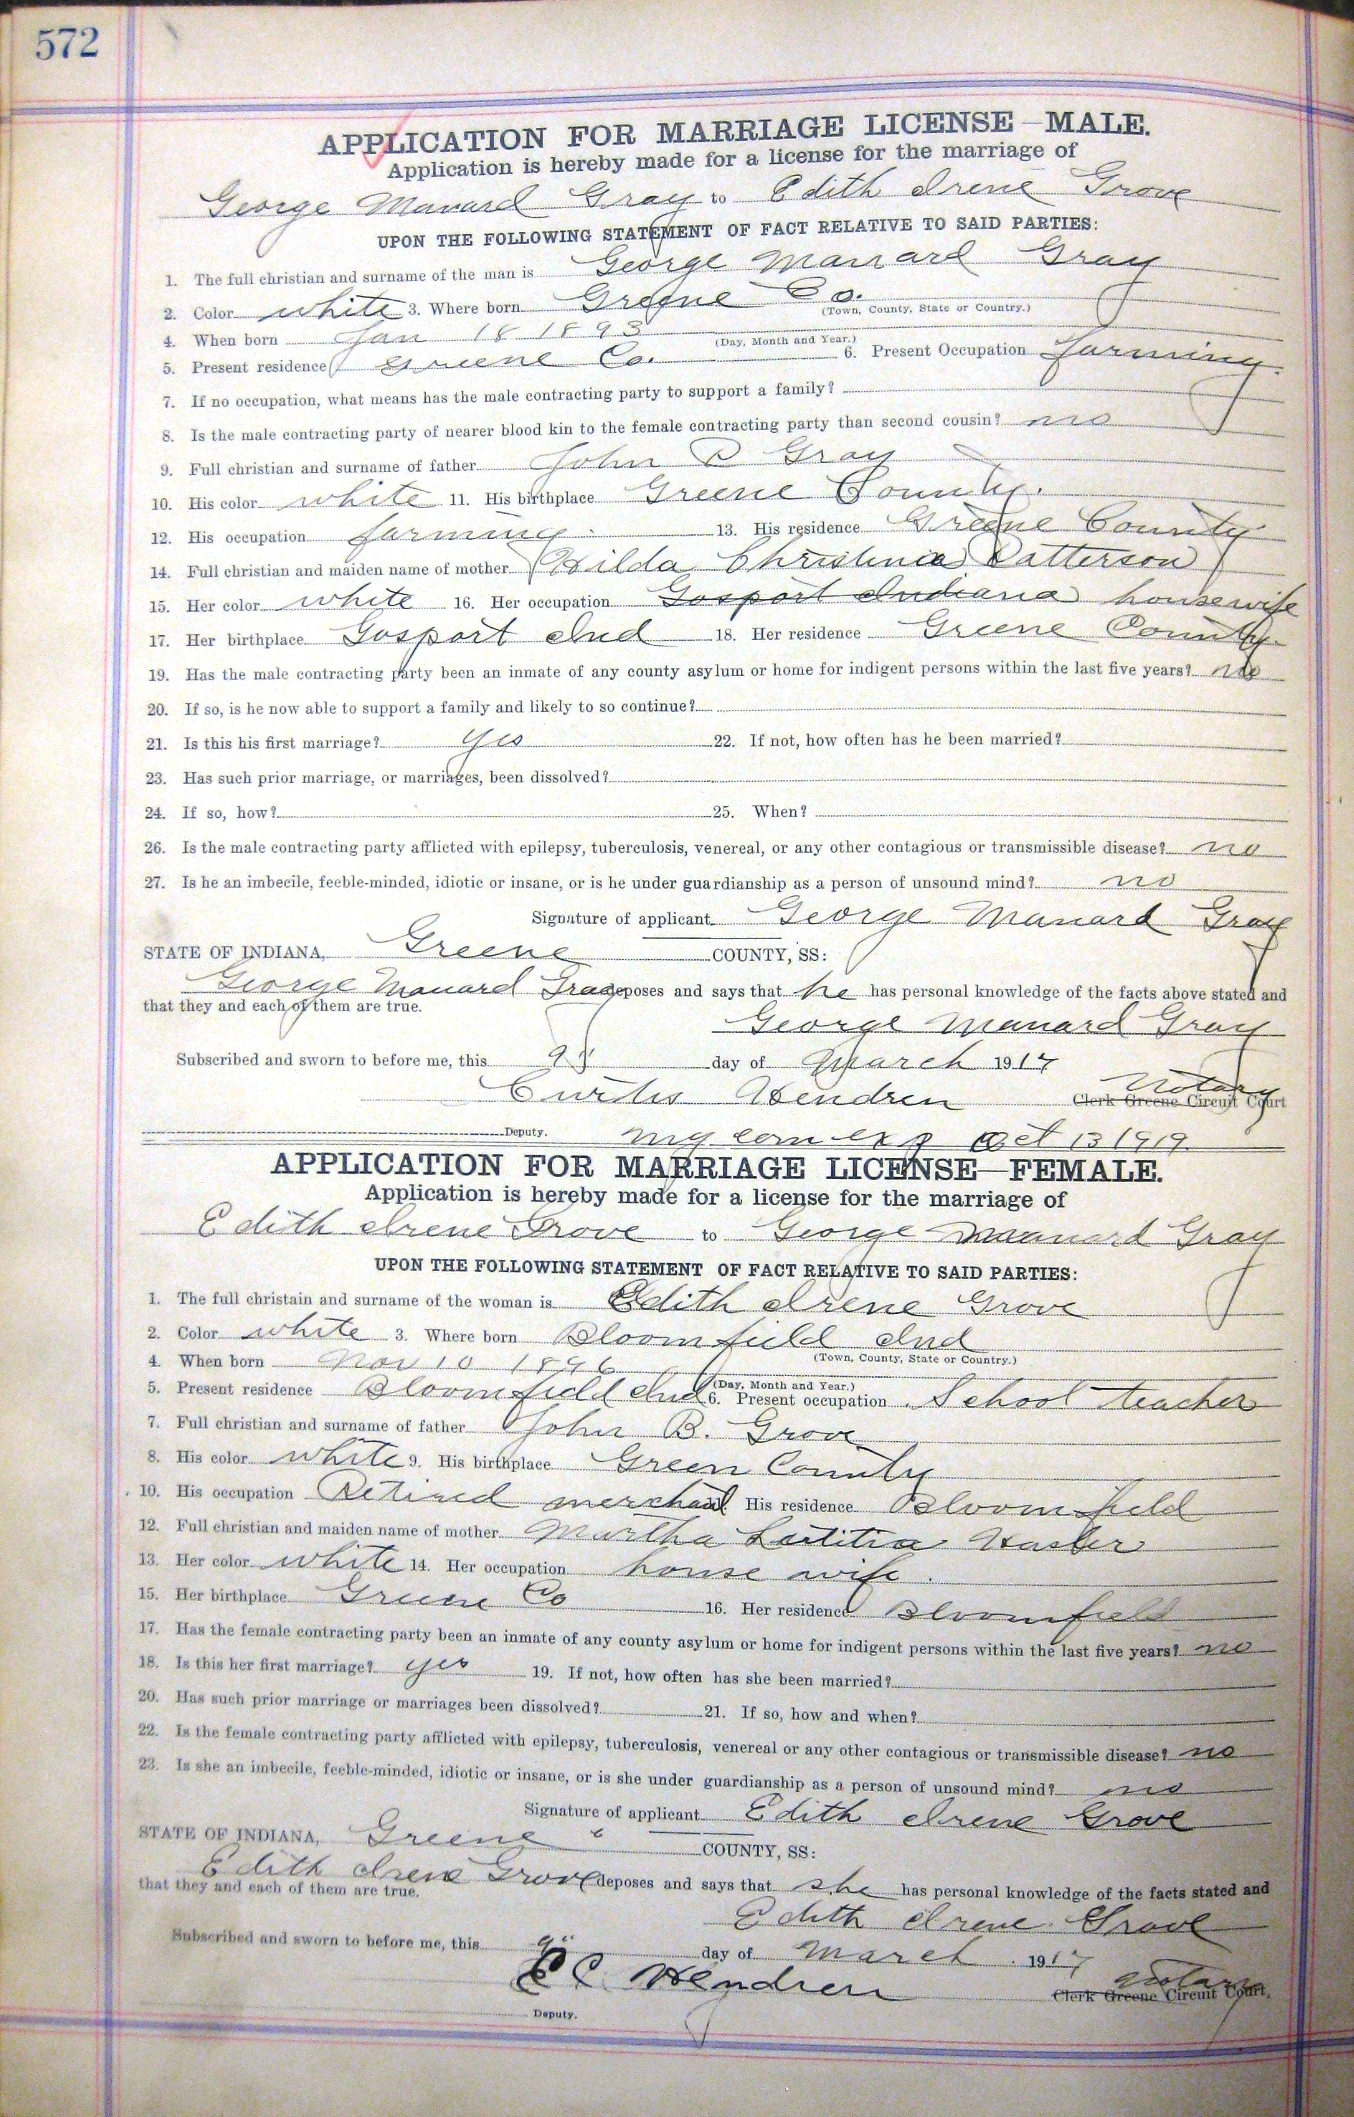 572
APPLICATION FOR MARRIAGE LICENSE—MALE.
Application is hereby made for a license for the marriage of
George Manard Gray to Edith Irene Grove
UPON THE FOLLOWING STATEMENT OF FACT RELATIVE TO SAID PARTIES:
1. The full christian and surname of the man is George Manard Gray
2. Color white 3. Where born Greene Co.
(Town, County, State or Country.)
4. When born Jan 18 1893
(Day, Month and Year.)
5. Present residence Greene Co. 6. Present Occupation farming.
7. If no occupation, what means has the male contracting party to support a family?
8. Is the male contracting party of nearer blood kin to the female contracting party than second cousin? no
9. Full christian and surname of father John C Gray
10. His color white 11. His birthplace Greene County.
12. His occupation farming. 13. His residence Greene County
14. Full christian and maiden name of mother Hilda Christina Patterson
15. Her color white 16. Her occupation Gosport Indiana housewife
17. Her birthplace Gosport Ind 18. Her residence Greene County
19. Has the male contracting party been an inmate of any county asylum or home for indigent persons within the last five years? no
20. If so, is he now able to support a family and likely to so continue?
21. Is this his first marriage? yes 22. If not, how often has he been married?
23. Has such prior marriage, or marriages, been dissolved?
24. If so, how? 25. When?
26. Is the male contracting party afflicted with epilepsy, tuberculosis, venereal, or any other contagious or transmissible disease? no
27. Is he an imbecile, feeble-minded, idiotic or insane, or is he under guardianship as a person of unsound mind? no
Signature of applicant George Manard Gray
STATE OF INDIANA, Greene COUNTY, SS:
George Manard Gray deposes and says that he has personal knowledge of the facts above stated and
that they and each of them are true.
George Manard Gray
Subscribed and sworn to before me, this 9" day of March 1917
Curtis Hendren Notary
Clerk Greene Circuit Court
Deputy. My com exp Oct 13 1919.
APPLICATION FOR MARRIAGE LICENSE—FEMALE.
Application is hereby made for a license for the marriage of
Edith Irene Grove to George Manard Gray
UPON THE FOLLOWING STATEMENT OF FACT RELATIVE TO SAID PARTIES:
1. The full christain and surname of the woman is Edith Irene Grove
2. Color white 3. Where born Bloomfield Ind
(Town, County, State or Country.)
4. When born Nov 10 1896
(Day, Month and Year.)
5. Present residence Bloomfield Ind 6. Present occupation School teacher
7. Full christian and surname of father John B. Grove
8. His color white 9. His birthplace Green County
10. His occupation Retired merchant His residence Bloomfield
12. Full christian and maiden name of mother Martha Letitia Hasler
13. Her color white 14. Her occupation house wife.
15. Her birthplace Greene Co 16. Her residence Bloomfield
17. Has the female contracting party been an inmate of any county asylum or home for indigent persons within the last five years? no
18. Is this her first marriage? yes 19. If not, how often has she been married?
20. Has such prior marriage or marriages been dissolved? 21. If so, how and when?
22. Is the female contracting party afflicted with epilepsy, tuberculosis, venereal or any other contagious or transmissible disease? no
23. Is she an imbecile, feeble-minded, idiotic or insane, or is she under guardianship as a person of unsound mind? no
Signature of applicant Edith Irene Grove
STATE OF INDIANA, Greene COUNTY, SS:
Edith Irene Grove deposes and says that she has personal knowledge of the facts stated and
that they and each of them are true.
Edith Irene Grove
Subscribed and sworn to before me, this 9" day of March 1917
E C Hendren Notary
Clerk Greene Circuit Court,
Deputy.